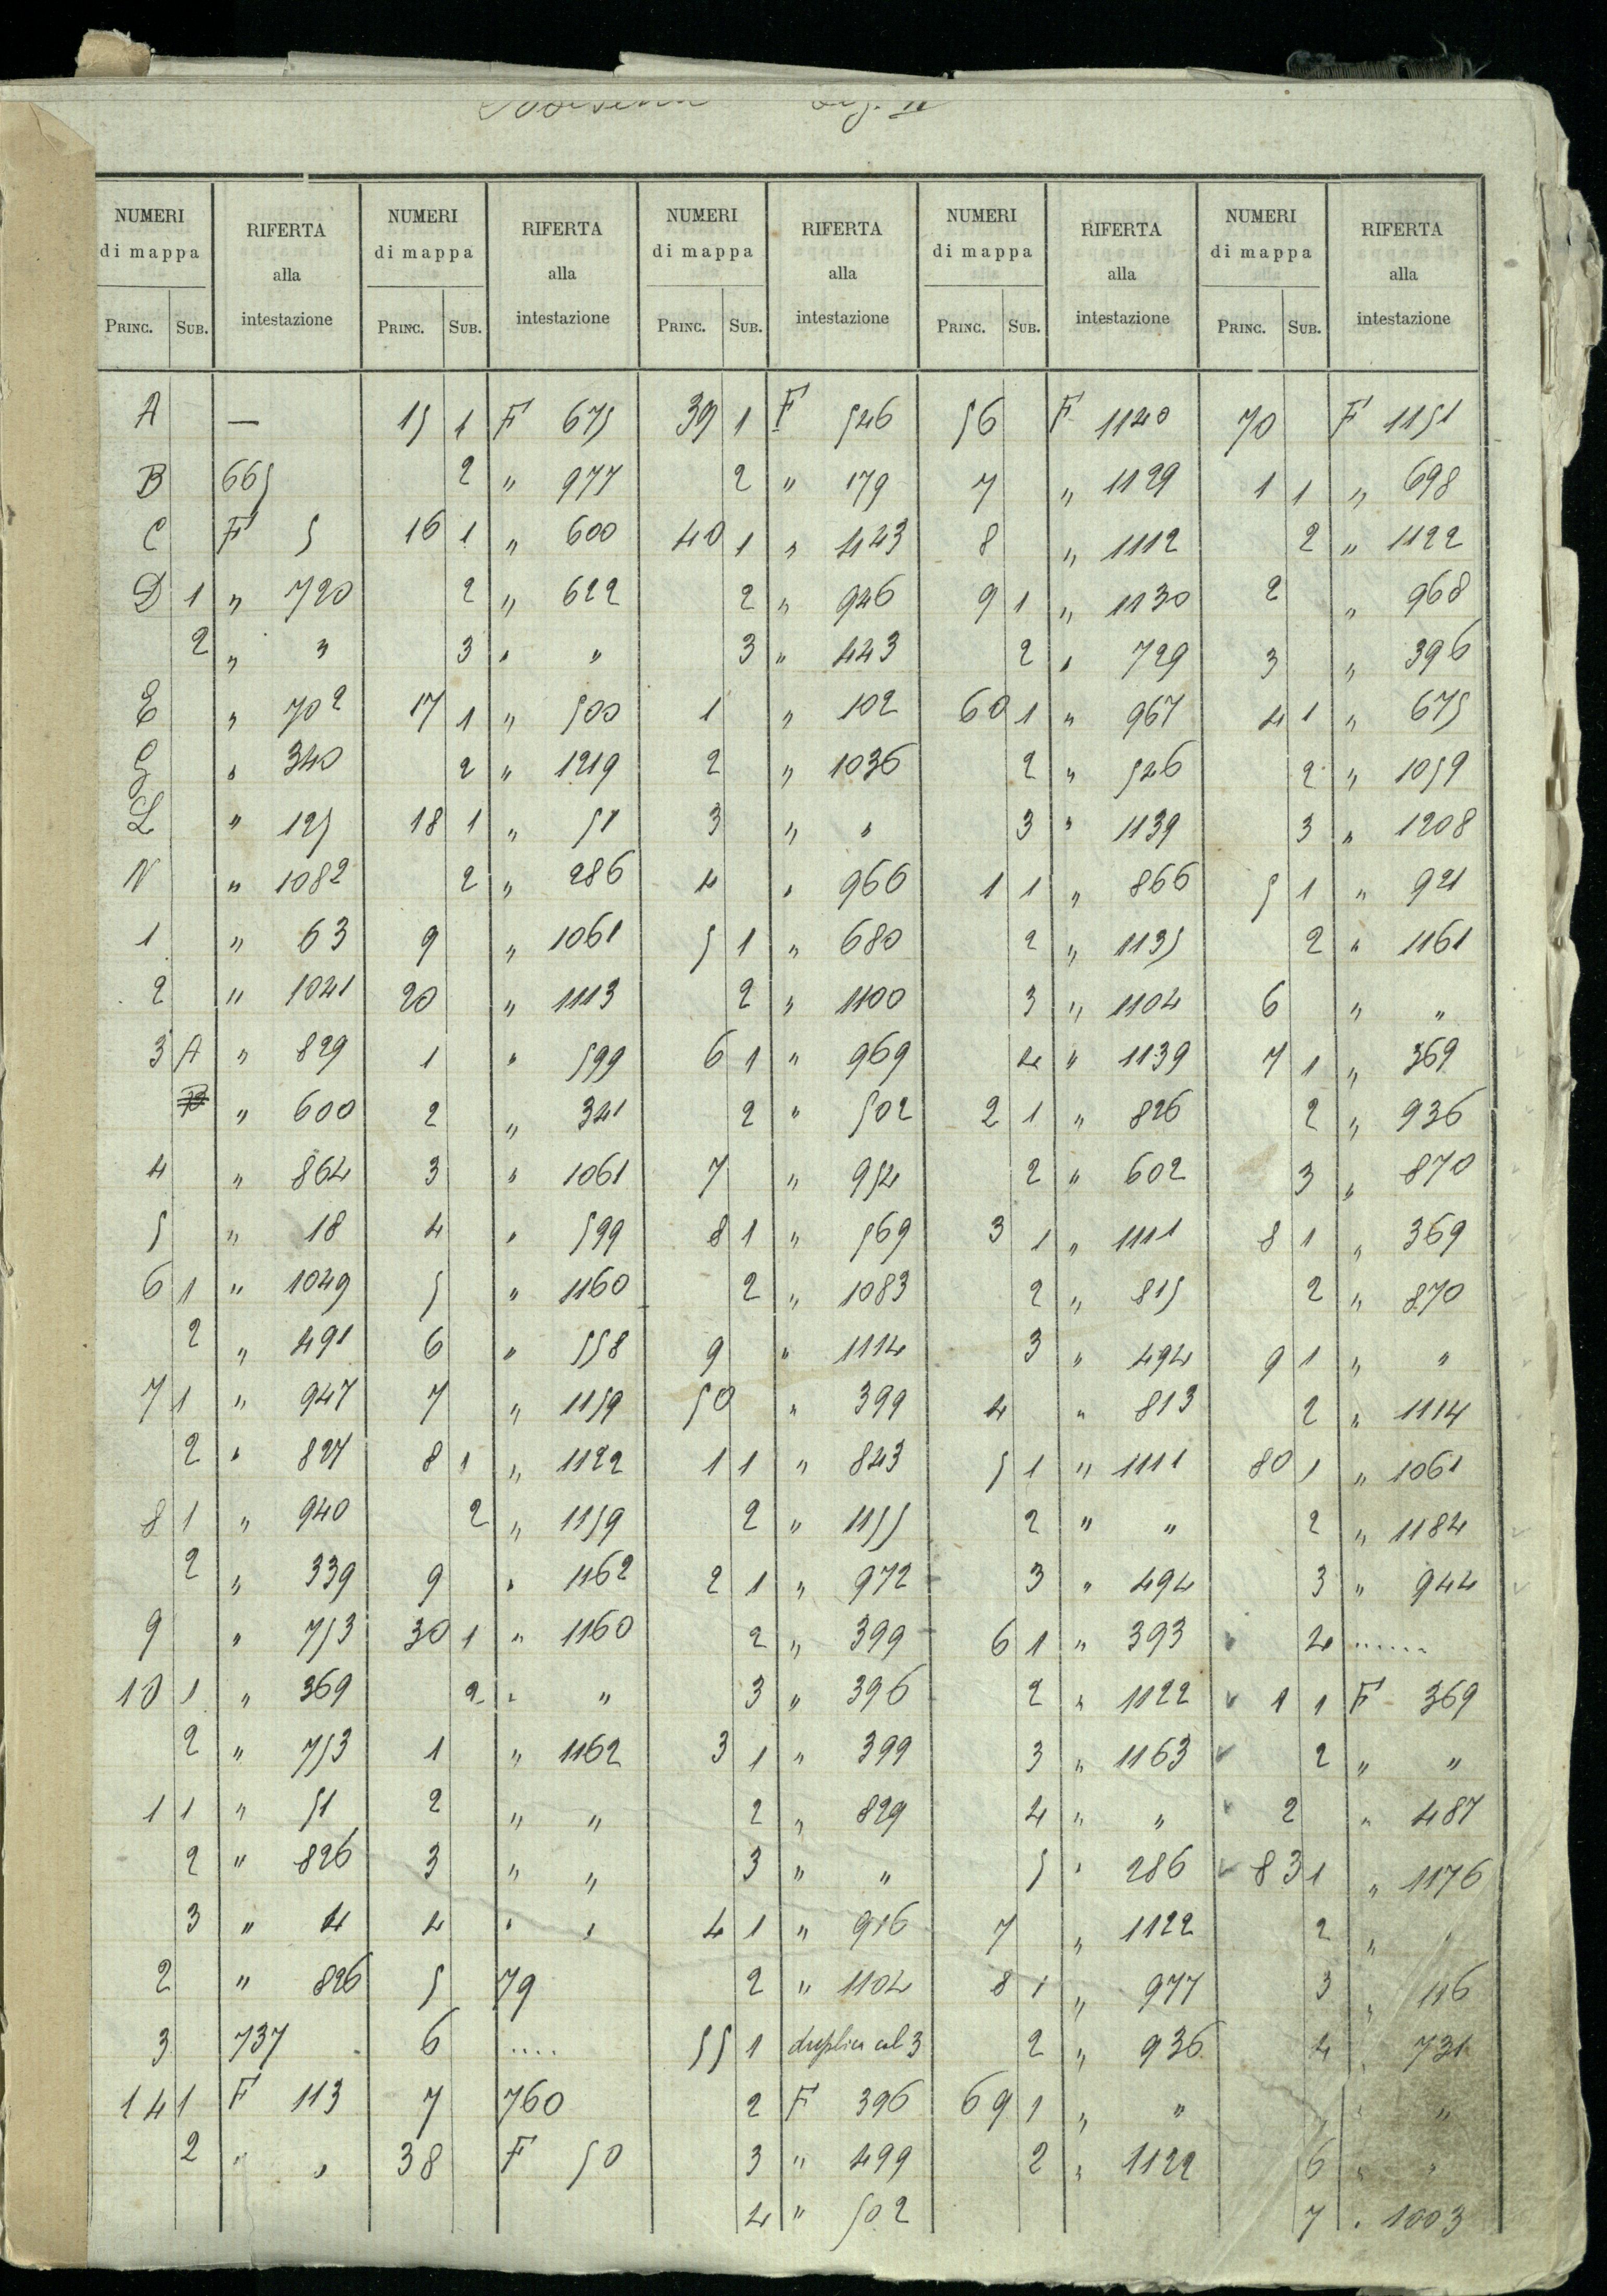 NUMERI di mappa RIFERTA alla intestazione NUMERI di mappa RIFERTA alla intestazione NUMERI di mappa RIFERTA alla intestazione NUMERI di mappa RIFERTA alla intestazione NUMERI di mappa RIFERTA alla intestazione
PRINC. SUB. PRINC. SUB. PRINC. SUB. PRINC. SUB. PRINC. SUB.
A — 15 1 F 675 39 1 F 546 56 F 1140 70 F 1151
B 665 2 " 977 2 " 179 7 " 1129 1 1 " 698
C F 5 16 1 " 600 40 1 " 443 8 " 1112 2 " 1122
D 1 " 720 2 " 622 2 " 946 9 1 " 1130 2 " 968
2 " " 3 " " 3 " 443 2 " 729 3 " 396
E " 702 17 1 " 500 1 " 102 60 1 " 967 4 1 " 675
G " 340 2 " 1219 2 " 1036 2 " 546 2 " 1059
L " 125 18 1 " 51 3 " " 3 " 1139 3 " 1208
N " 1082 2 " 286 4 " 966 1 1 " 866 5 1 " 921
1 " 63 9 " 1061 5 1 " 680 2 " 1135 2 " 1161
2 " 1041 20 " 1113 2 " 1100 3 " 1104 6 " "
3 A " 829 1 " 599 6 1 " 969 4 " 1139 7 1 " 369
B " 600 2 " 341 2 " 502 2 1 " 826 2 " 936
4 " 864 3 " 1061 7 " 954 2 " 602 3 " 870
5 " 18 4 " 599 8 1 " 569 3 1 " 1111 8 1 " 369
6 1 " 1049 5 " 1160 2 " 1083 2 " 815 2 " 870
2 " 491 6 " 558 9 " 1114 3 " 494 9 1 " "
7 1 " 947 7 " 1159 50 " 399 4 " 813 2 " 1114
2 " 827 8 1 " 1122 1 1 " 843 5 1 " 1111 80 1 " 1061
8 1 " 940 2 " 1159 2 " 1155 2 " " 2 " 1184
2 " 339 9 " 1162 2 1 " 972 3 " 494 3 " 944
9 " 753 30 1 " 1160 2 " 399 6 1 " 393 4 ......
10 1 " 369 2 " " 3 " 396 2 " 1122 1 1 F 369
2 " 753 1 " 1162 3 1 " 399 3 " 1163 2 " "
1 1 " 51 2 " " 2 " 829 4 " " 2 " 487
2 " 826 3 " " 3 " " 5 " 286 83 1 " 1176
3 " 4 4 " " 4 1 " 916 7 " 1122 2 " "
2 " 826 5 79 2 " 1104 8 1 " 977 3 " 116
3 737 6 .... 55 1 duplica col 3 2 " 936 4 " 731
14 1 F 113 7 760 2 F 396 69 1 " " " "
2 " " 38 F 50 3 " 499 2 " 1122 6 " "
4 " 502 7 " 1003